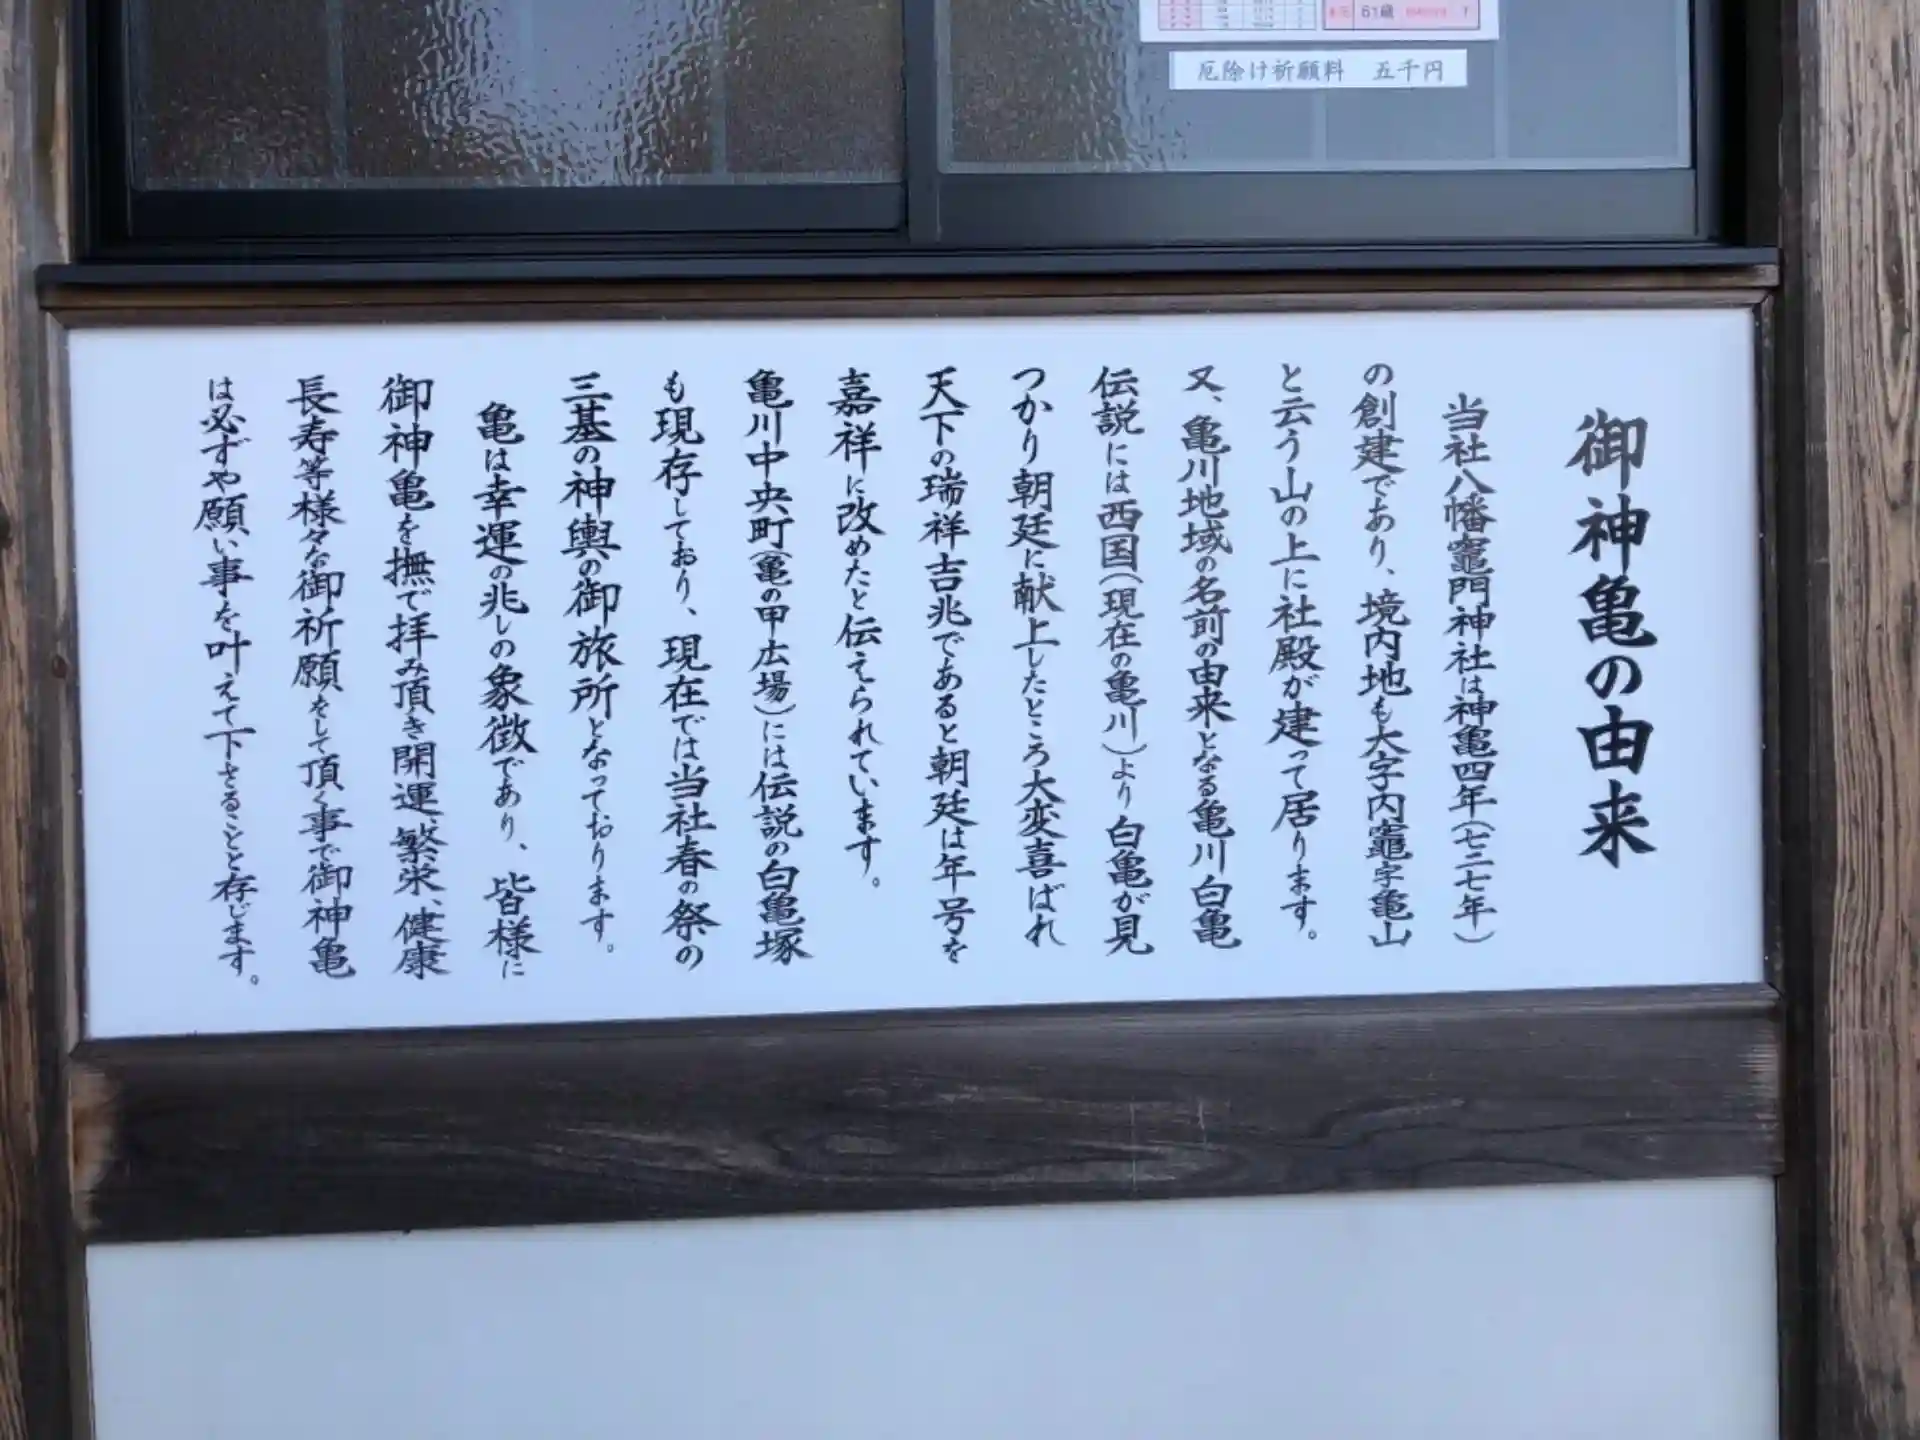 61歳
厄除け祈願料 五千円
御神亀の由来
当社八幡竈門神社は神亀四年（七二七年）
の創建であり、境内地も大字内竈字亀山
と云う山の上に社殿が建って居ります。
又、亀川地域の名前の由来となる亀川白亀
伝説には西国（現在の亀川）より白亀が見
つかり朝廷に献上したところ大変喜ばれ
天下の瑞祥吉兆であると朝廷は年号を
嘉祥に改めたと伝えられています。
亀川中央町（亀の甲広場）には伝説の白亀塚
も現存しており、現在では当社春の祭の
三基の神輿の御旅所となっております。
亀は幸運の兆しの象徴であり、皆様に
御神亀を撫で拝み頂き開運繁栄、健康
長寿等様々な御祈願をして頂く事で御神亀
は必ずや願い事を叶えて下さることと存じます。